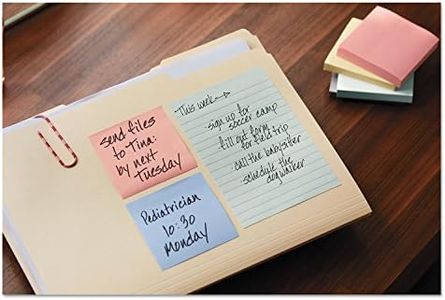 send files
to Tina:
by next
Tuesday
Pediatrician
10:30
Monday
This week →
- sign up for
soccer camp
fill out form
for field trip
call the babysitter
- schedule the
dogwalker